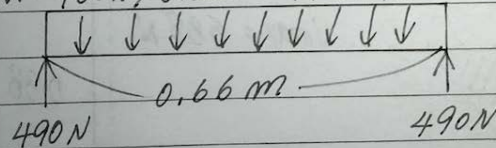 0.66 m
490 N 490 N